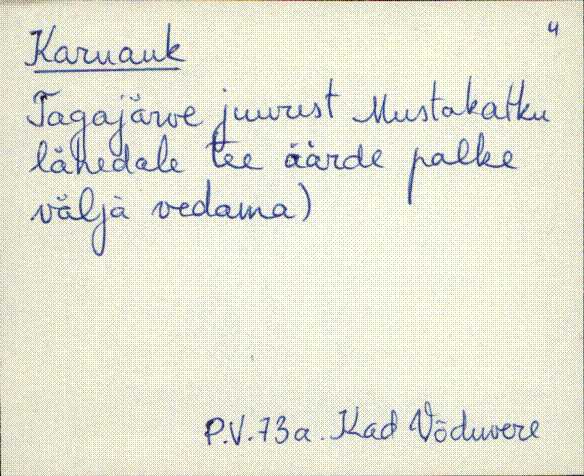 4
Karuauk
Tagajärve juurest Mustakatku
lähedale tee äärde palke
väljä vedama)
P.V. 73 a. Kad Võduvere